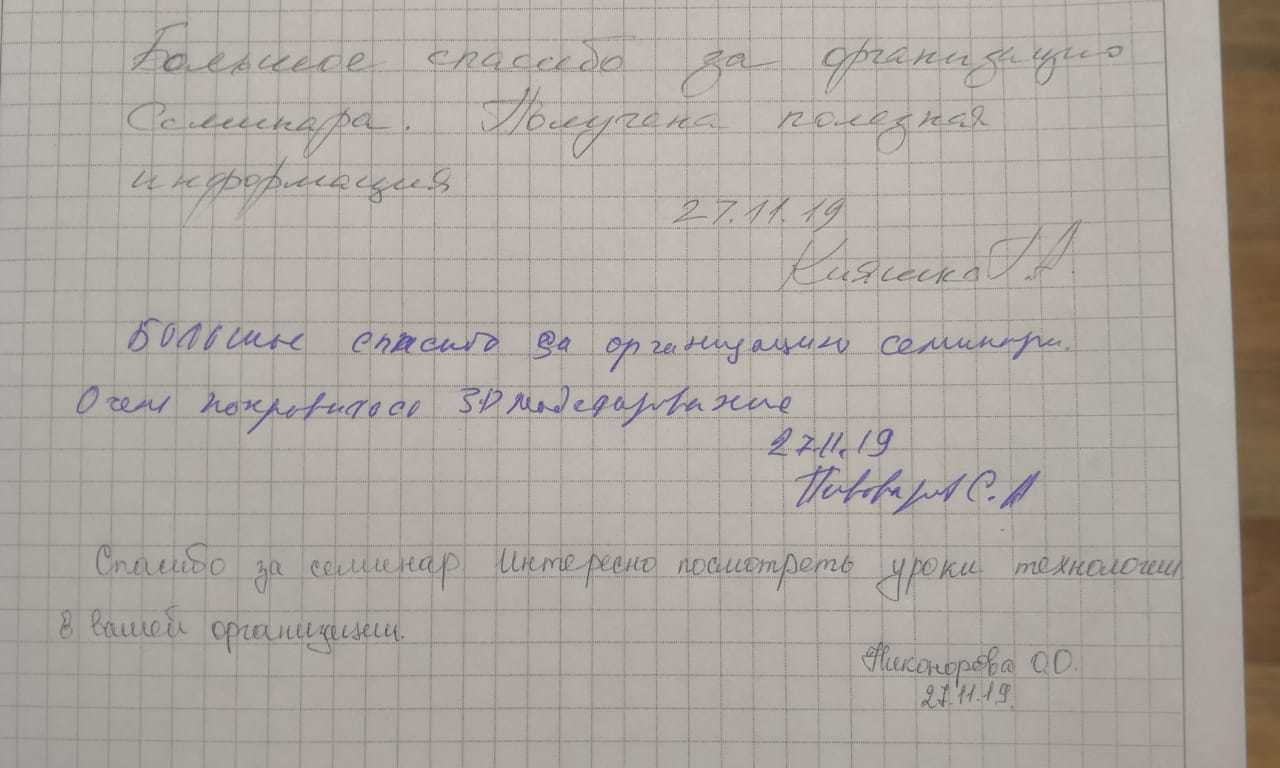 Большое спасибо за организацию
Семинара. Получена полезная
информация
27.11.19
Кияшко Г.А.
Большое спасибо за организацию семинара.
Очень понравилось 3D моделирование
27.11.19
Пивоваров С.А
Спасибо за семинар Интересно посмотреть уроки технологии
в вашей организации.
Никонорова О.О.
27.11.19.